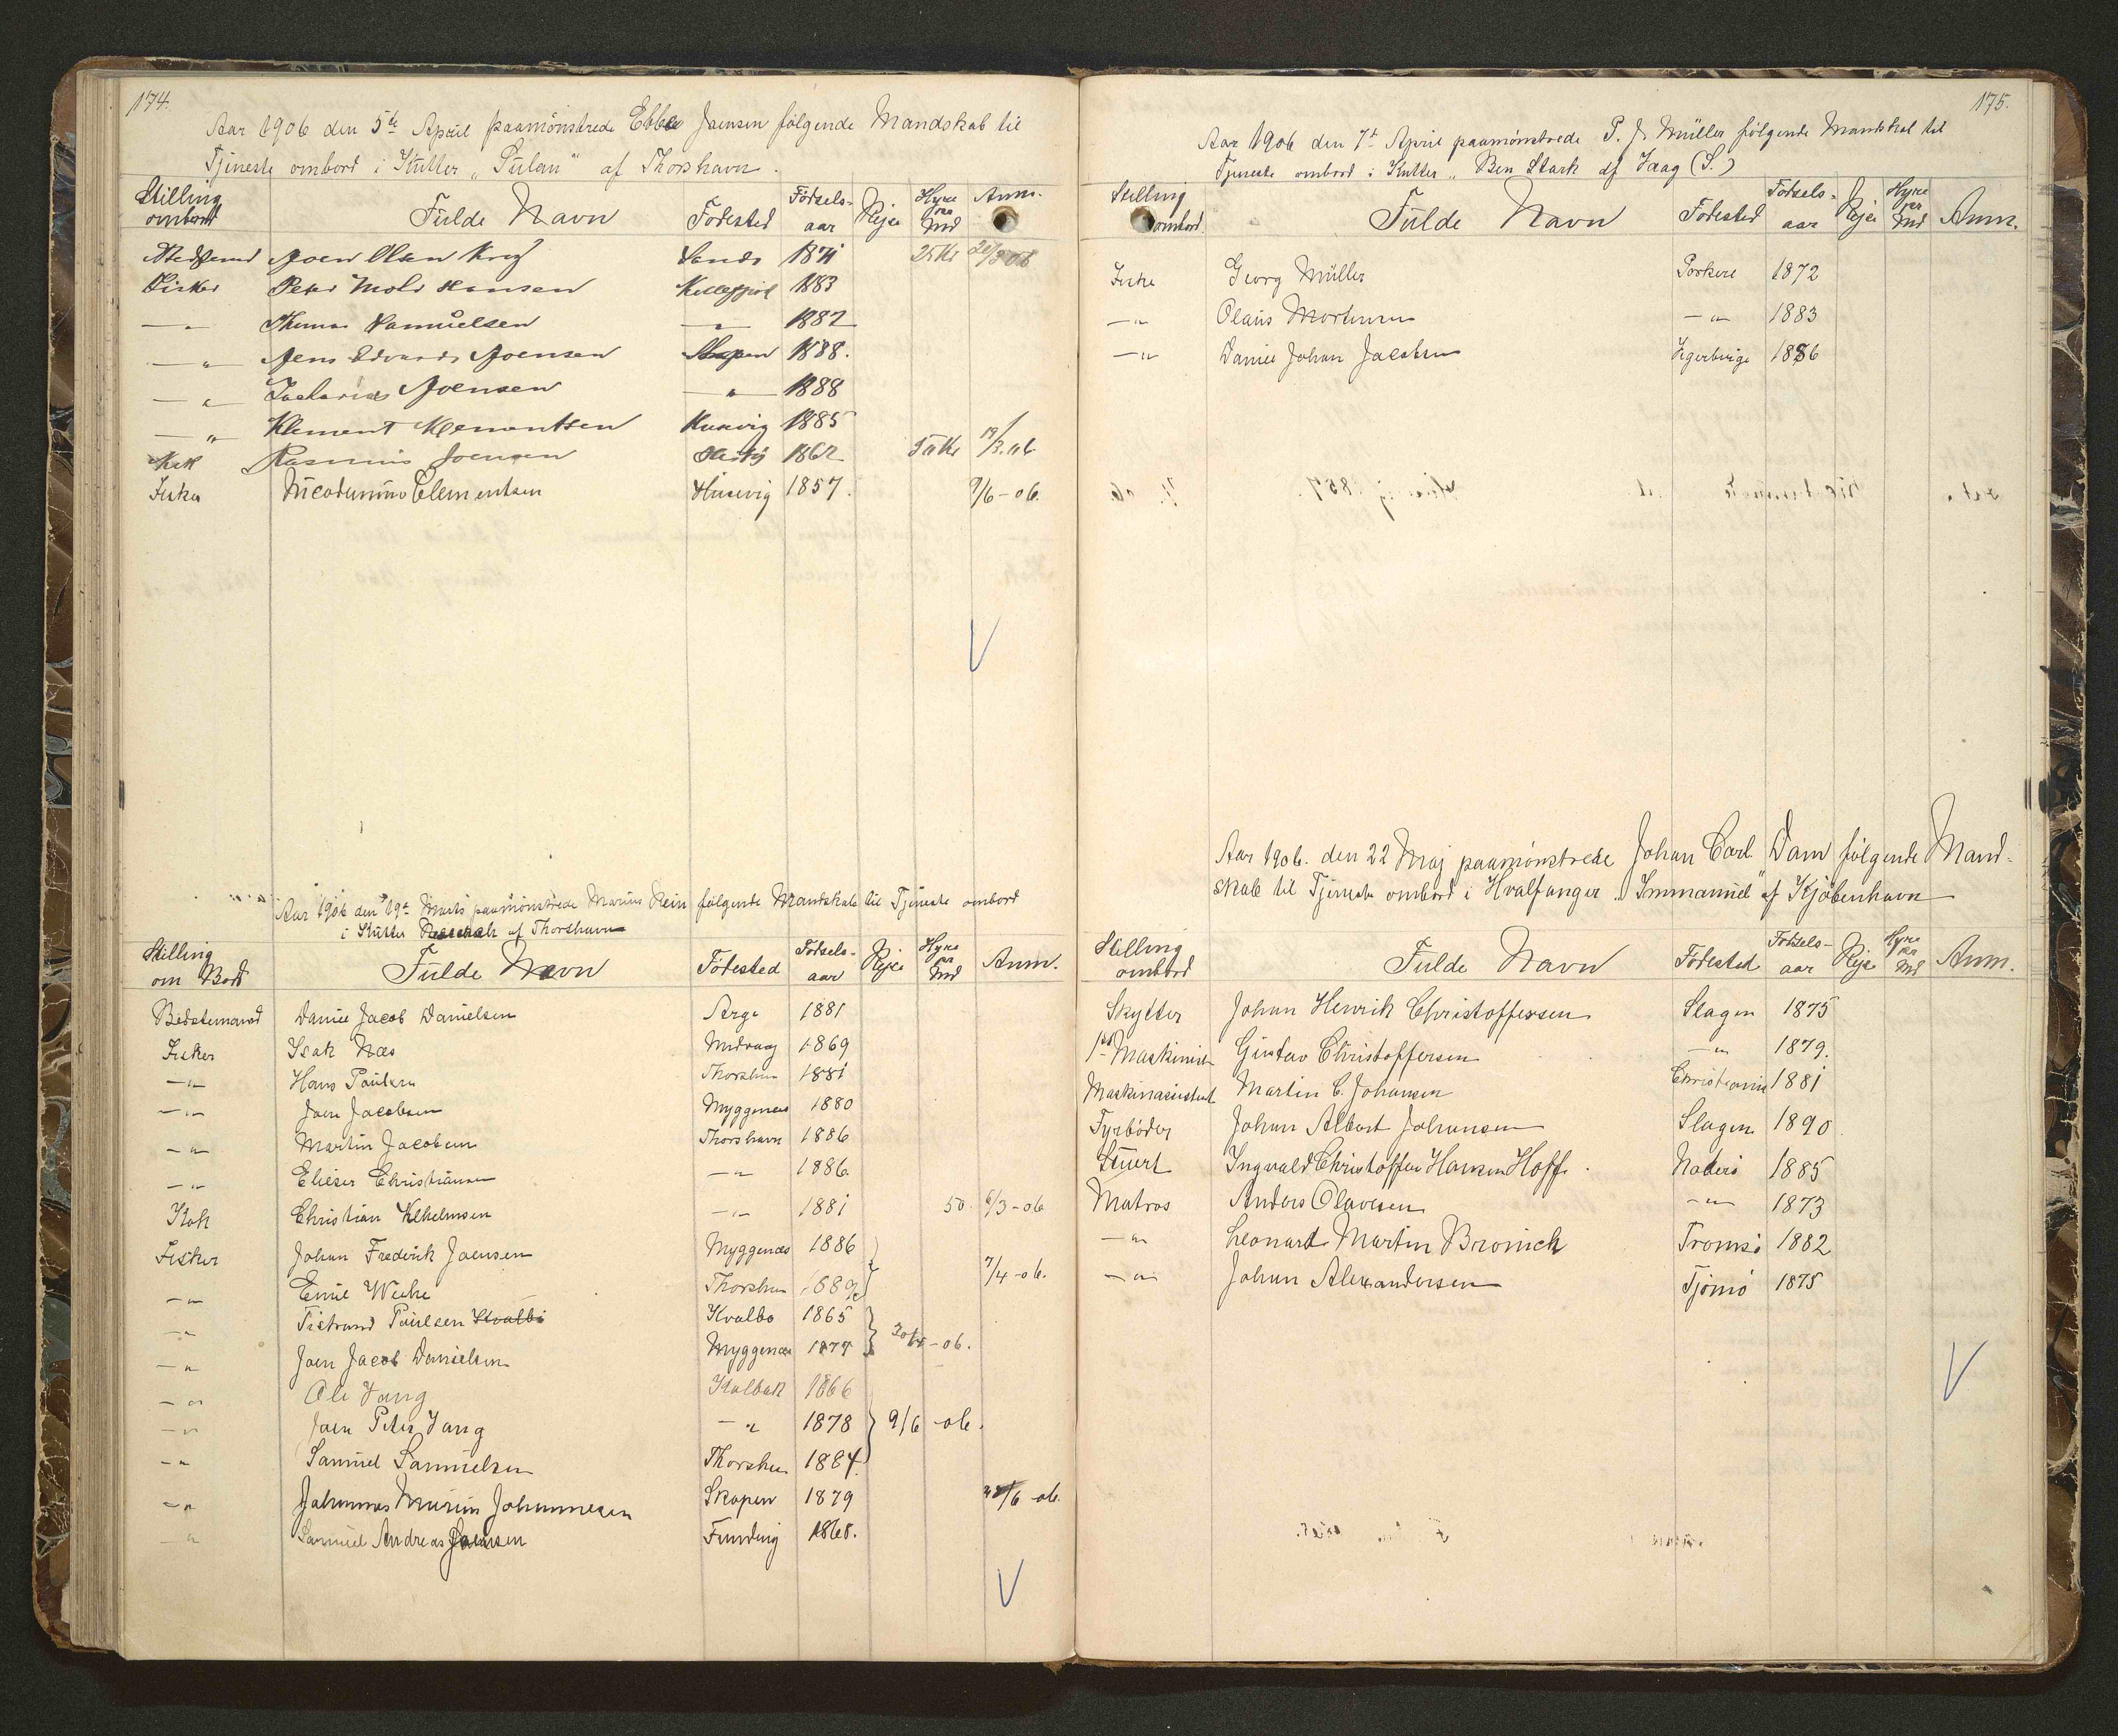 174.
Aar 1906 den 5te April paamönstrede Ebbe Joensen følgende Mandskab til
Tjeneste ombord i Kutter „Sulan" af Thorshavn.
Stilling ombord Fulde Navn Fødested Fødsels-aar Rejse Hyre pr Md Anm.
Bedstemand Joen Olsen Sands 1871 25 Kr
Fisker Peter Mohr Hansen Kollefjord 1883
—"— Thomas Samuelsen —"— 1882
—"— Jens Edvard Joensen Skopen 1888.
—"— Zacharias Joensen —"— 1888
—"— Klement Klementsen Husevig 1885
Kok Rasmus Joensen 1862 19/3.06
Fisker Nicodemus Clementsen Husevig 1857. 9/6-06.
Aar 1906 den 19de Marts paamönstrede Marius Rein følgende Mandskab til Tjeneste ombord
i Kutter af Thorshavn
Stilling om Bord Fulde Navn Fødested Fødsels-aar Rejse Hyre pr Md Anm.
Bedstemand Daniel Jacob Danielsen Arge 1881
Fisker Isak Næs Midvaag 1869
—"— Hans Poulsen Thorshvn 1881
—"— Joen Jacobsen Myggenæs 1880
—"— Martin Jacobsen Thorshavn 1886
—"— Elieser Christiansen —"— 1886.
Kok Christian Vilhelmsen —"— 1881 50. 6/3-06
Fisker Johan Frederik Joensen Myggenæs 1886
—"— Emil Weihe Thorshvn 1889 7/4-06.
—"— Tistrand Poulsen Kvalbø Kvalbø 1865
—"— Joen Jacob Danielsen Myggenæs 1877 30/4-06.
—"— Ole Vang Kalbak 1866
—"— Joen Peter Vang —"— 1878 9/6-06.
—"— Samuel Samuelsen Thorshvn 1884.
—"— Johannes Marius Johannesen Skopen 1879 /6-06.
—"— Samuel Andreas Joensen Funding 1868.
175.
Aar 1906 den 7de April paamönstrede P. J. Müller følgende Mandskab til
Tjeneste ombord i Kutter „Ben Stark af Vaag (S.)
Stilling ombord. Fulde Navn Fødested Fødsels-aar Rejse Hyre pr Md Anm.
Fisker Georg Müller Porkere 1872
—"— Olaus Mortensen —"— 1883
—"— Daniel Johan Jacobsen 1886
Aar 1906. den 22 Maj paamönstrede Johan Carl Dam følgende Mand-
skab til Tjeneste ombord i Hvalfanger „Immanuel" af Kjöbenhavn
Stilling ombord Fulde Navn Fødested Fødsels-aar Rejse Hyre pr Md Anm.
Skytter Johan Henrik Christoffersen Slagen 1875
1ste Maskinist Gustav Christoffersen —"— 1879.
Maskinassistent Martin C. Johansen Christiania 1881
Fyrbøder Johan Albert Johansen Slagen 1890
Stuert Ingvald Christoffer Hansen Hoff. Nøtterö 1885
Matros Anders Olavesen —"— 1873
—"— Leonard Martin Bronich Tromsö 1882
—"— Johan Alexandersen Tjömö 1875